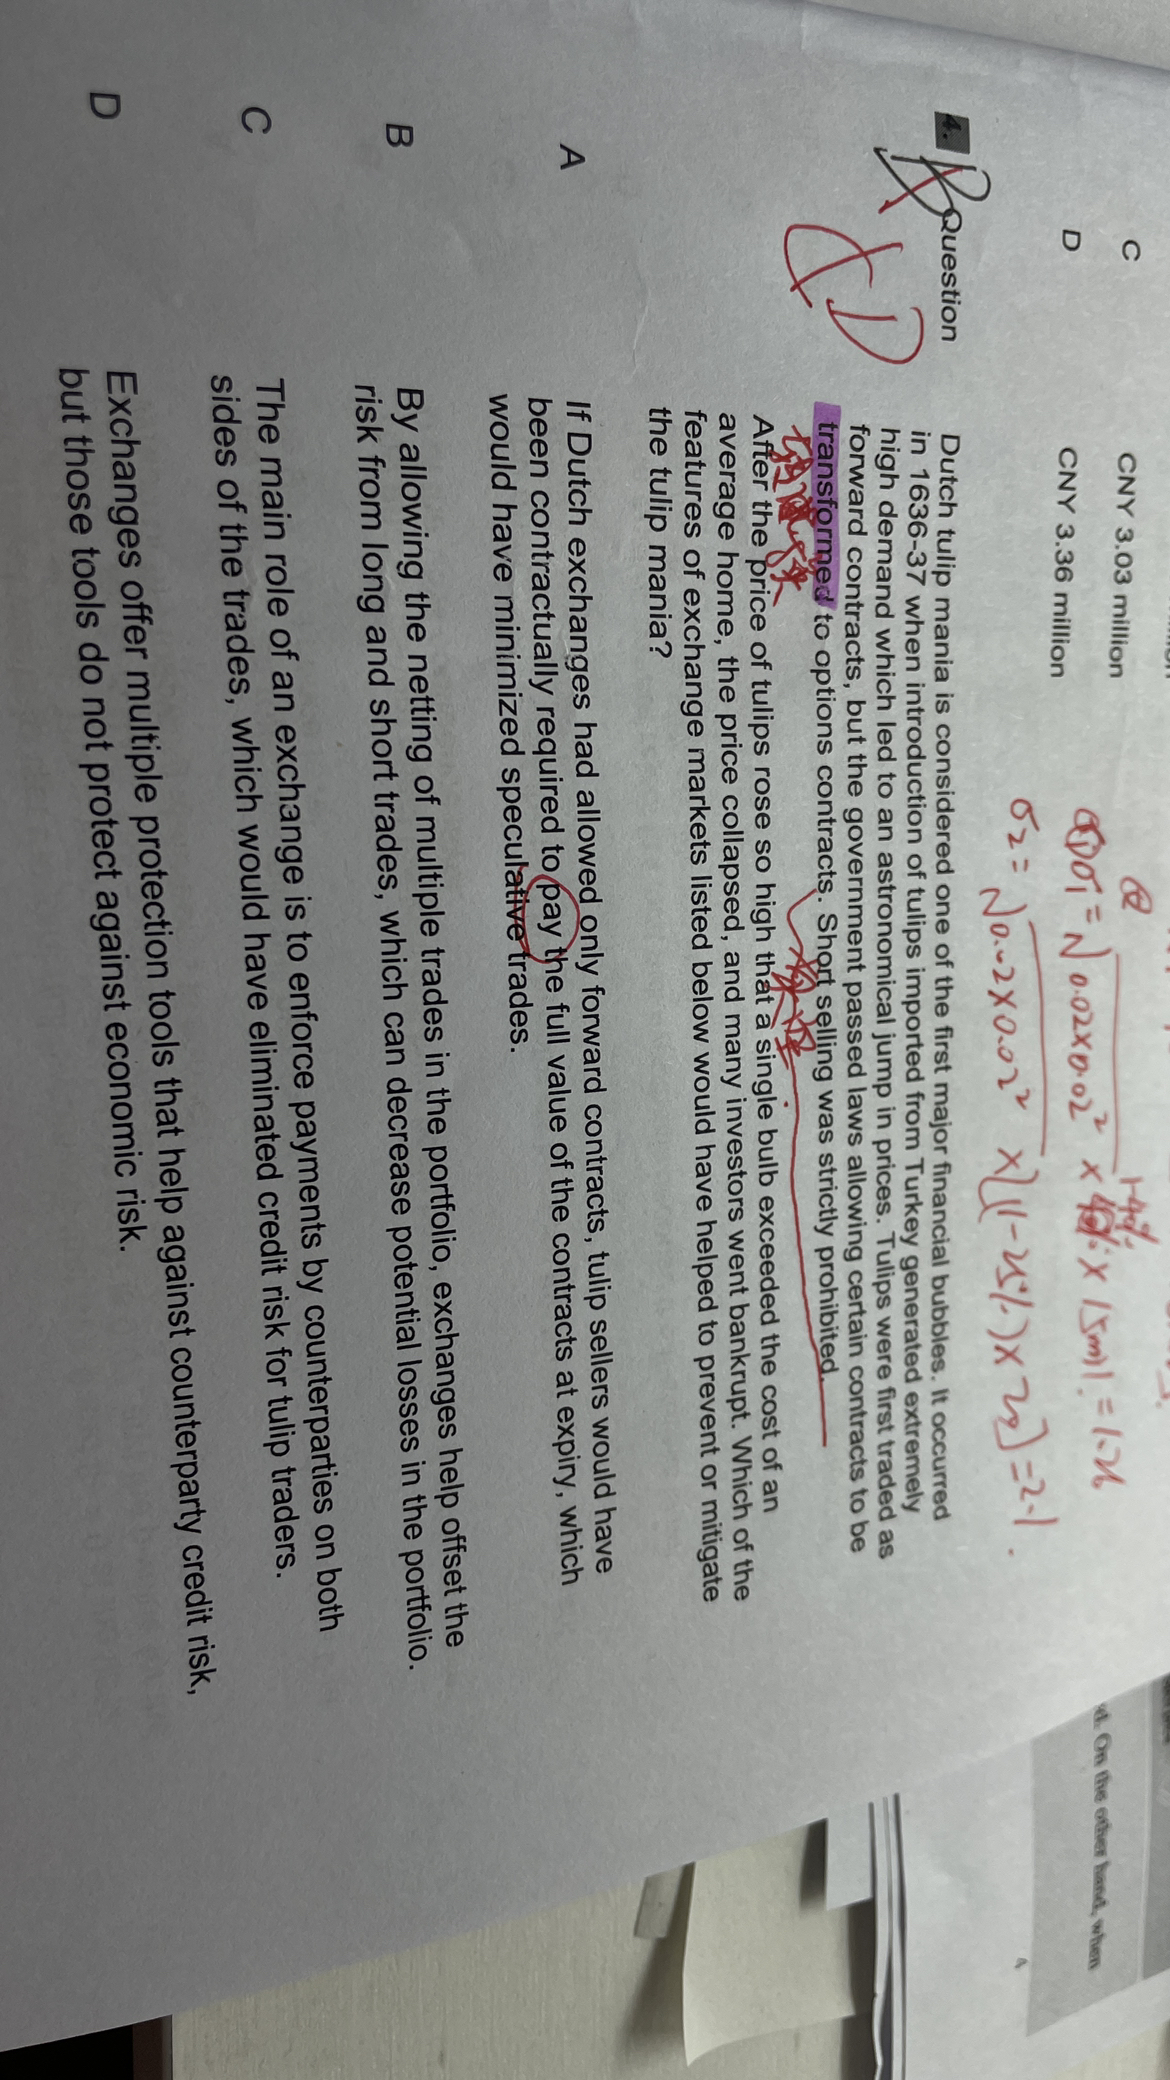 C CNY 3.03 million
D CNY 3.36 million
σ1 = √0.02×0.02² × × 15m) = 1.26
1-40%
σ2 = √0.02×0.02² × [(1-25%) × 20] = 2.1
4. Question
D
Dutch tulip mania is considered one of the first major financial bubbles. It occurred
in 1636-37 when introduction of tulips imported from Turkey generated extremely
high demand which led to an astronomical jump in prices. Tulips were first traded as
forward contracts, but the government passed laws allowing certain contracts to be
transformed to options contracts. Short selling was strictly prohibited.
After the price of tulips rose so high that a single bulb exceeded the cost of an
average home, the price collapsed, and many investors went bankrupt. Which of the
features of exchange markets listed below would have helped to prevent or mitigate
the tulip mania?
A If Dutch exchanges had allowed only forward contracts, tulip sellers would have
been contractually required to pay the full value of the contracts at expiry, which
would have minimized speculative trades.
B By allowing the netting of multiple trades in the portfolio, exchanges help offset the
risk from long and short trades, which can decrease potential losses in the portfolio.
C The main role of an exchange is to enforce payments by counterparties on both
sides of the trades, which would have eliminated credit risk for tulip traders.
D Exchanges offer multiple protection tools that help against counterparty credit risk,
but those tools do not protect against economic risk.
On the other hand, when